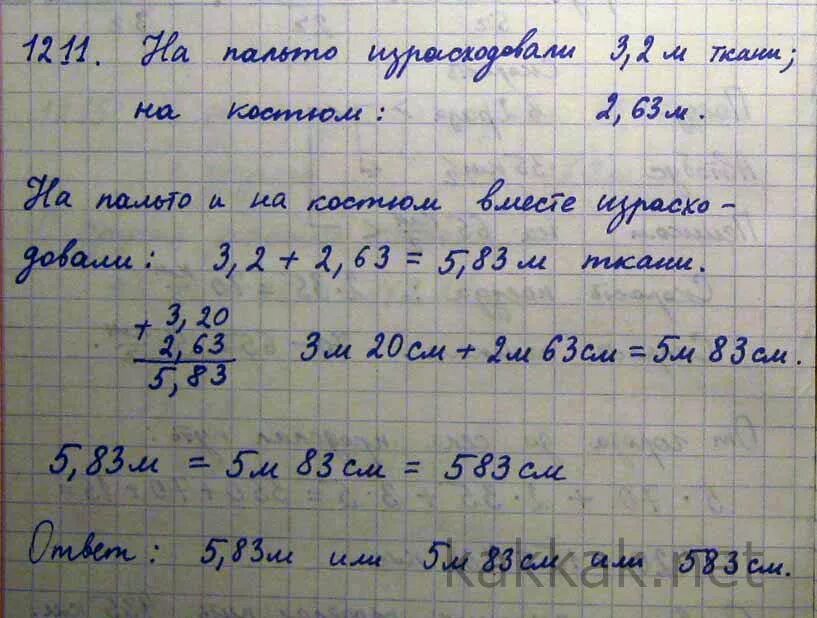 1211. На пальто израсходовали 3,2 м ткани;
на костюм: 2,63 м.
На пальто и на костюм вместе израсхо-
довали: 3,2 + 2,63 = 5,83 м ткани.
+ 3,20
2,63
5,83
3 м 20 см + 2 м 63 см = 5 м 83 см.
5,83 м = 5 м 83 см = 583 см
Ответ: 5,83 м или 5 м 83 см или 583 см.
kakkak.net